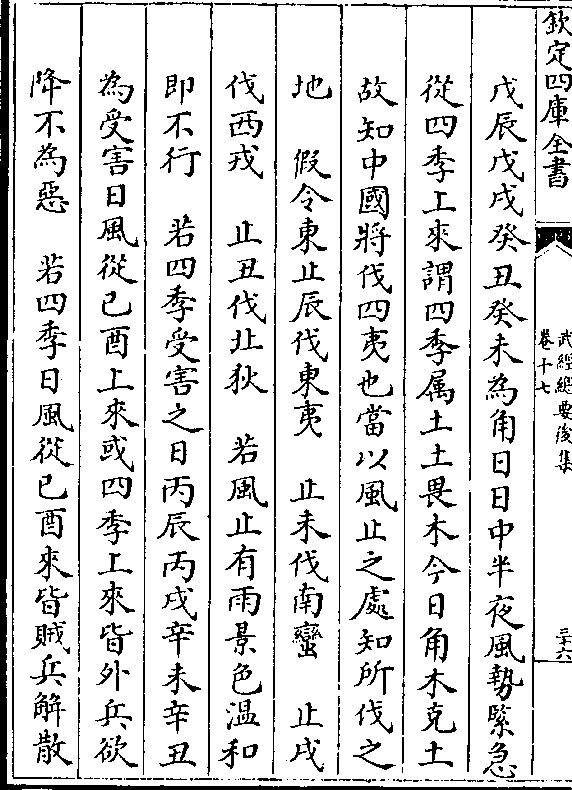 欽定四庫全書
武經總要後集
卷十七
三十六
戊辰戊戌癸丑癸未為角日日中半夜風勢緊急
從四季上來謂四季属土土畏木今日角木克土
故知中國將伐四夷也當以風止之處知所伐之
地　假令東止辰伐東夷　止未伐南蠻　止戌
伐西戎　止丑伐北狄　若風止有雨景色温和
即不行　若四季受害之日丙辰丙戌辛未辛丑
為受害日風從己酉上來或四季上來皆外兵欲
降不為惡　若四季日風從己酉來皆賊兵解散